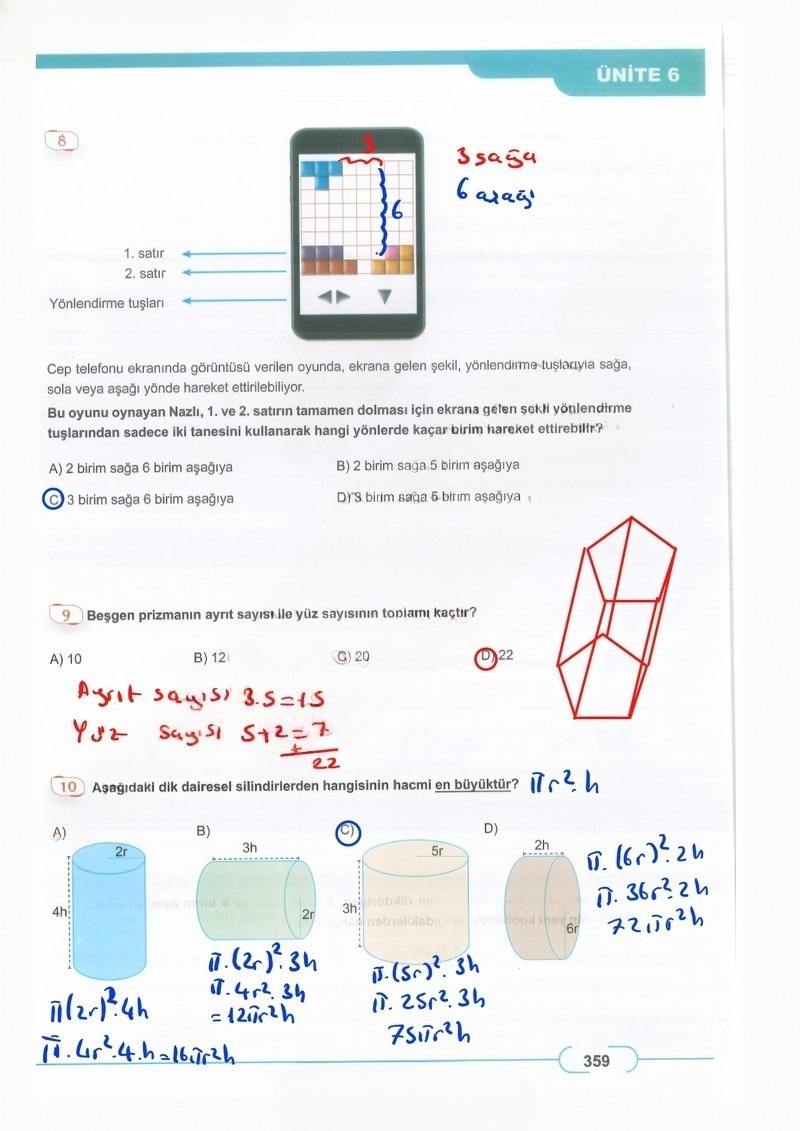 ÜNİTE 6
8
3
3 sağa
6 aşağı
6
1. satır
2. satır
Yönlendirme tuşları
Cep telefonu ekranında görüntüsü verilen oyunda, ekrana gelen şekil, yönlendirme tuşlarıyla sağa,
sola veya aşağı yönde hareket ettirilebiliyor.
Bu oyunu oynayan Nazlı, 1. ve 2. satırın tamamen dolması için ekrana gelen şekli yönlendirme
tuşlarından sadece iki tanesini kullanarak hangi yönlerde kaçar birim hareket ettirebilir?
A) 2 birim sağa 6 birim aşağıya
B) 2 birim sağa 5 birim aşağıya
C) 3 birim sağa 6 birim aşağıya
D) 3 birim sağa 5 birim aşağıya
9 Beşgen prizmanın ayrıt sayısı ile yüz sayısının toplamı kaçtır?
A) 10
B) 12
C) 20
D) 22
Ayrıt sayısı 3.5=15
Yüz sayısı 5+2=7
+
22
10 Aşağıdaki dik dairesel silindirlerden hangisinin hacmi en büyüktür? πr².h
A)
2r
4h
π(2r)².4h
π.4r².4.h=16πr²h
B)
3h
2r
π.(2r)².3h
π.4r².3h
=12πr²h
C)
5r
3h
π.(5r)².3h
π.25r².3h
75πr²h
D)
2h
6r
π.(6r)².2h
π.36r².2h
72πr²h
359